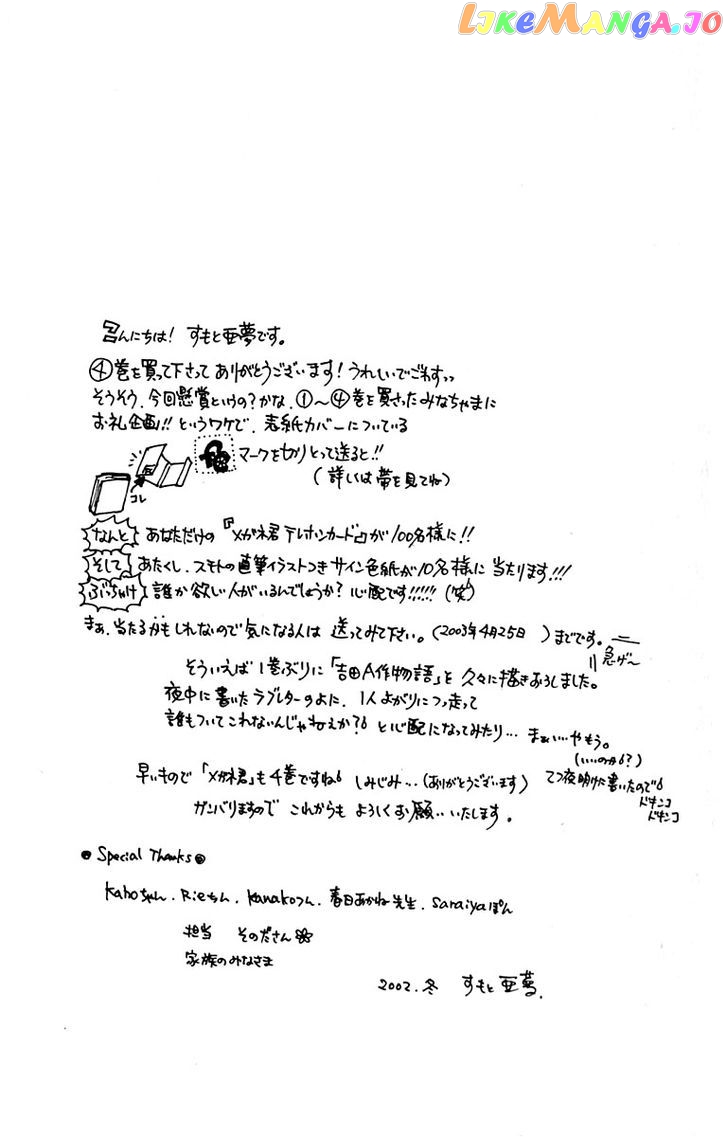 LIKEMANGA.IO
こんにちは! すもと亜夢です。
④巻を買って下さって ありがとうございます! うれしいでごわすっっ
そうそう、今回懸賞といけの?かな、①〜④巻を買さったみなちゃまに
お礼企画!! というワケで、表紙カバーについている
マークを切りとって送ると!!
(詳しくは帯を見てね)
コレ
なんと あなただけの『メガネ君テレホンカード』が100名様に!!
そして あたくし、スモトの直筆イラストつきサイン色紙が10名様に当たります!!!
ぶっちゃけ 誰か欲しい人がいるんでしょうか? 心配です!!!!! (笑)
まぁ、当たるかもしれないので気になる人は 送ってみて下さい。(2003年4月25日 )までです。
急げ〜
そういえば 1巻ぶりに「吉田A作物語」を 久々に描きおろしました。
夜中に書いたラブレターのよに、1人よがりにつっ走って
誰もついてこれないんじゃねえか? と心配になってみたり… まぁ、いーやもう。
(いいのか?)
早いもので「メガネ君」も4巻ですね しみじみ…(ありがとうございます)
てつ夜明けに書いたので
ドキンコ
ドキンコ
ガンバリますので これからも よろしくお願いいたします。
● Special Thanks ●
Kahoちゃん、Rieちん、Kanakoつん、春日あかね先生、saraiyaぽん
担当 そのださん
家族のみなさま
2002.冬 すもと亜夢.